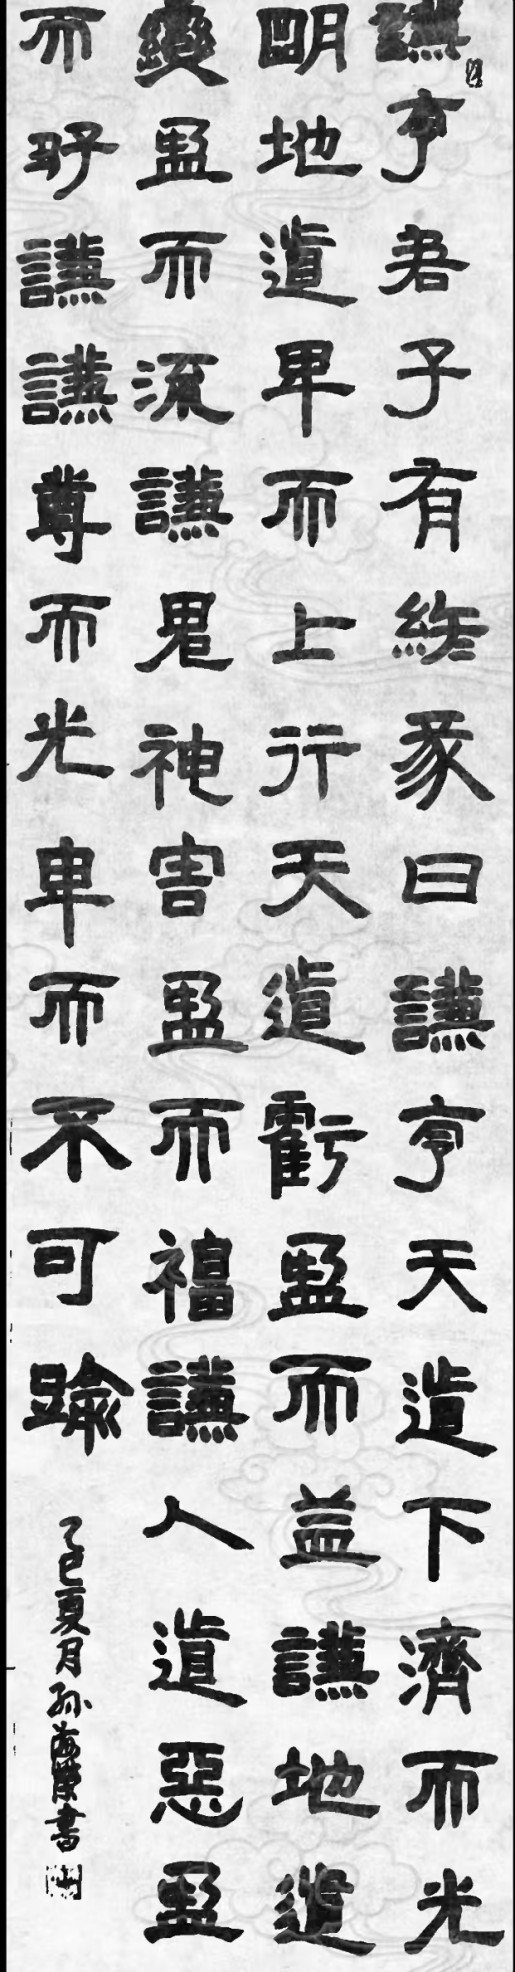 謙亨君子有終彖曰謙亨天道下濟而光
明地道卑而上行天道虧盈而益謙地道
變盈而流謙鬼神害盈而福謙人道惡盈
而好謙謙尊而光卑而不可踰
乙巳夏月孫海陵書